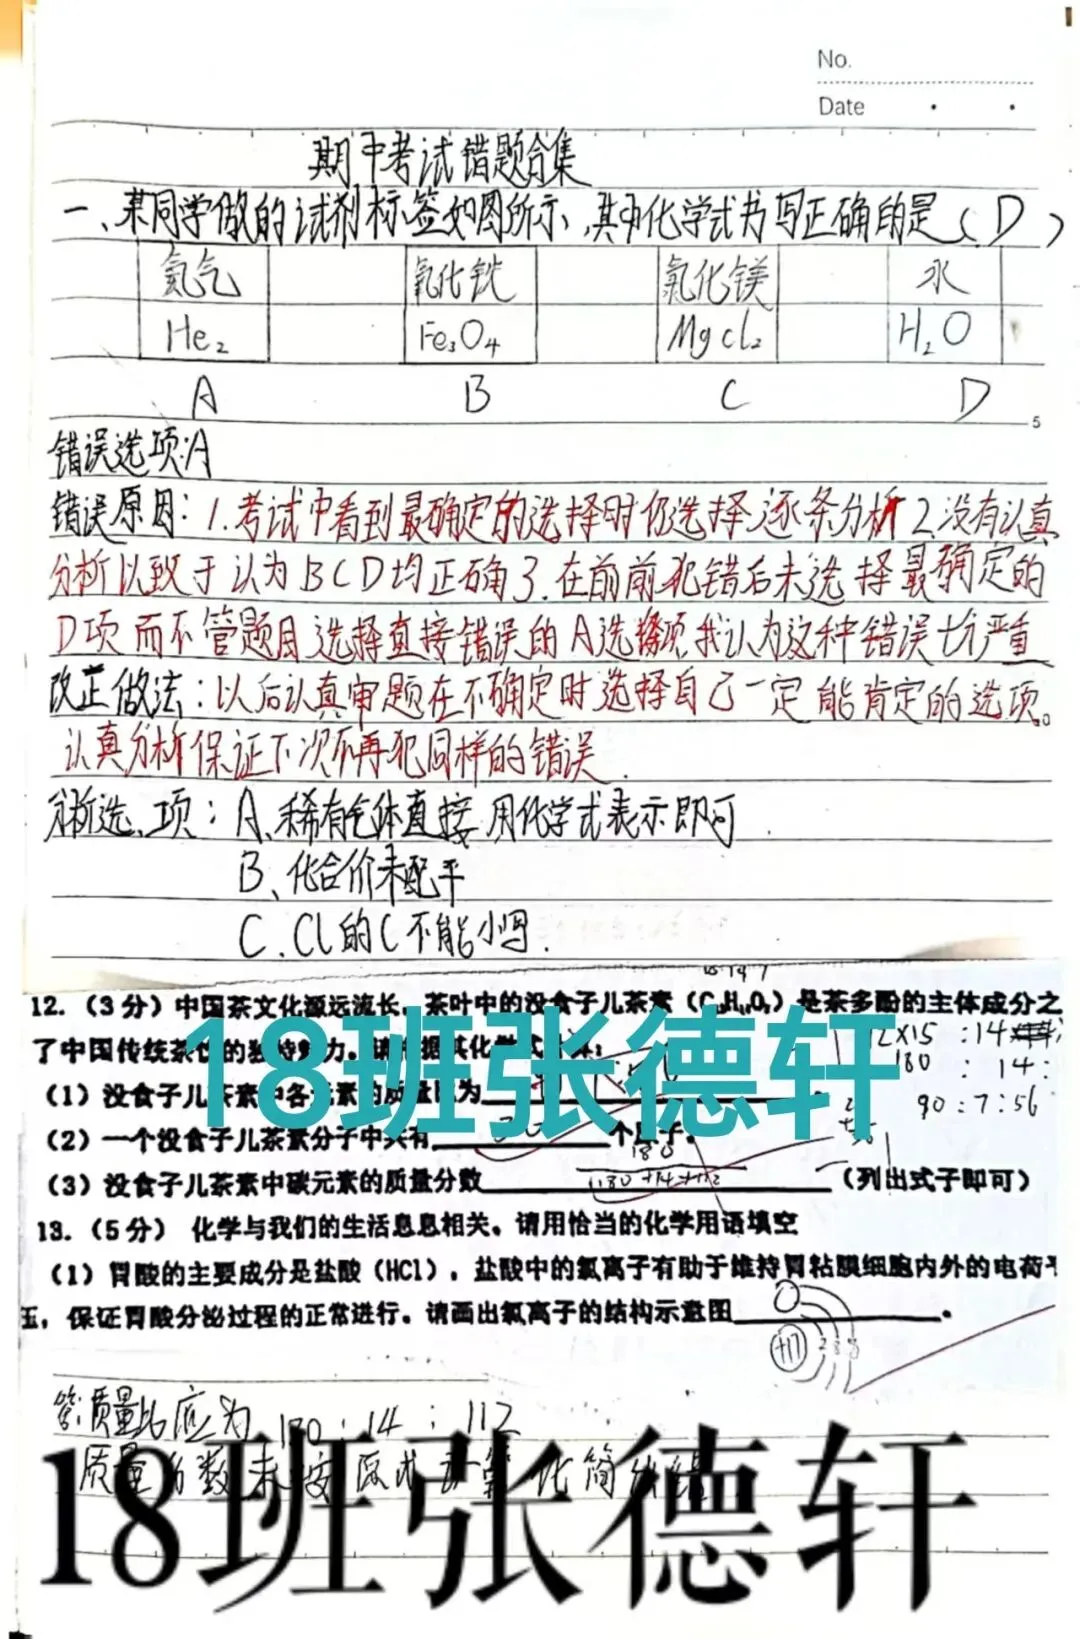 No.
Date
期中考试错题合集
一、某同学做的试剂标签如图所示,其中化学式书写正确的是(D)
氦气 氧化铁 氯化镁 水
He₂ Fe₃O₄ Mgcl₂ H₂O
A B C D
5
错误选项:A
错误原因:1.考试中看到最确定的选择时仍选择逐条分析2.没有认真
分析以致于认为BCD均正确3.在前前犯错后未选择最确定的
D项而不管题目选择直接错误的A选项我认为这种错误十分严重
改正做法:以后认真审题在不确定时选择自己一定能肯定的选项。
认真分析保证下次不再犯同样的错误.
分析选项:A、稀有气体直接用化学式表示即可.
B、化合价未配平
C.Cl的C不能小写.
12.(3分)中国茶文化源远流长,茶叶中的没食子儿茶素()是茶多酚的主体成分之
了中国传统茶饮的独特魅力。
12×15 :14
180 : 14:
90:7:56
(1)没食子儿茶素中各元素的质量比为
(2)一个没食子儿茶素分子中共有 个原子。
180
(3)没食子儿茶素中碳元素的质量分数 180+14+112 (列出式子即可)
13.(5分) 化学与我们的生活息息相关。请用恰当的化学用语填空
(1)胃酸的主要成分是盐酸(HCl),盐酸中的氯离子有助于维持胃粘膜细胞内外的电荷平
,保证胃酸分泌过程的正常进行。请画出氯离子的结构示意图 。
+17 2 8 8
18班张德轩
质量比应为 180:14:112
质量分数未按
18班张德轩